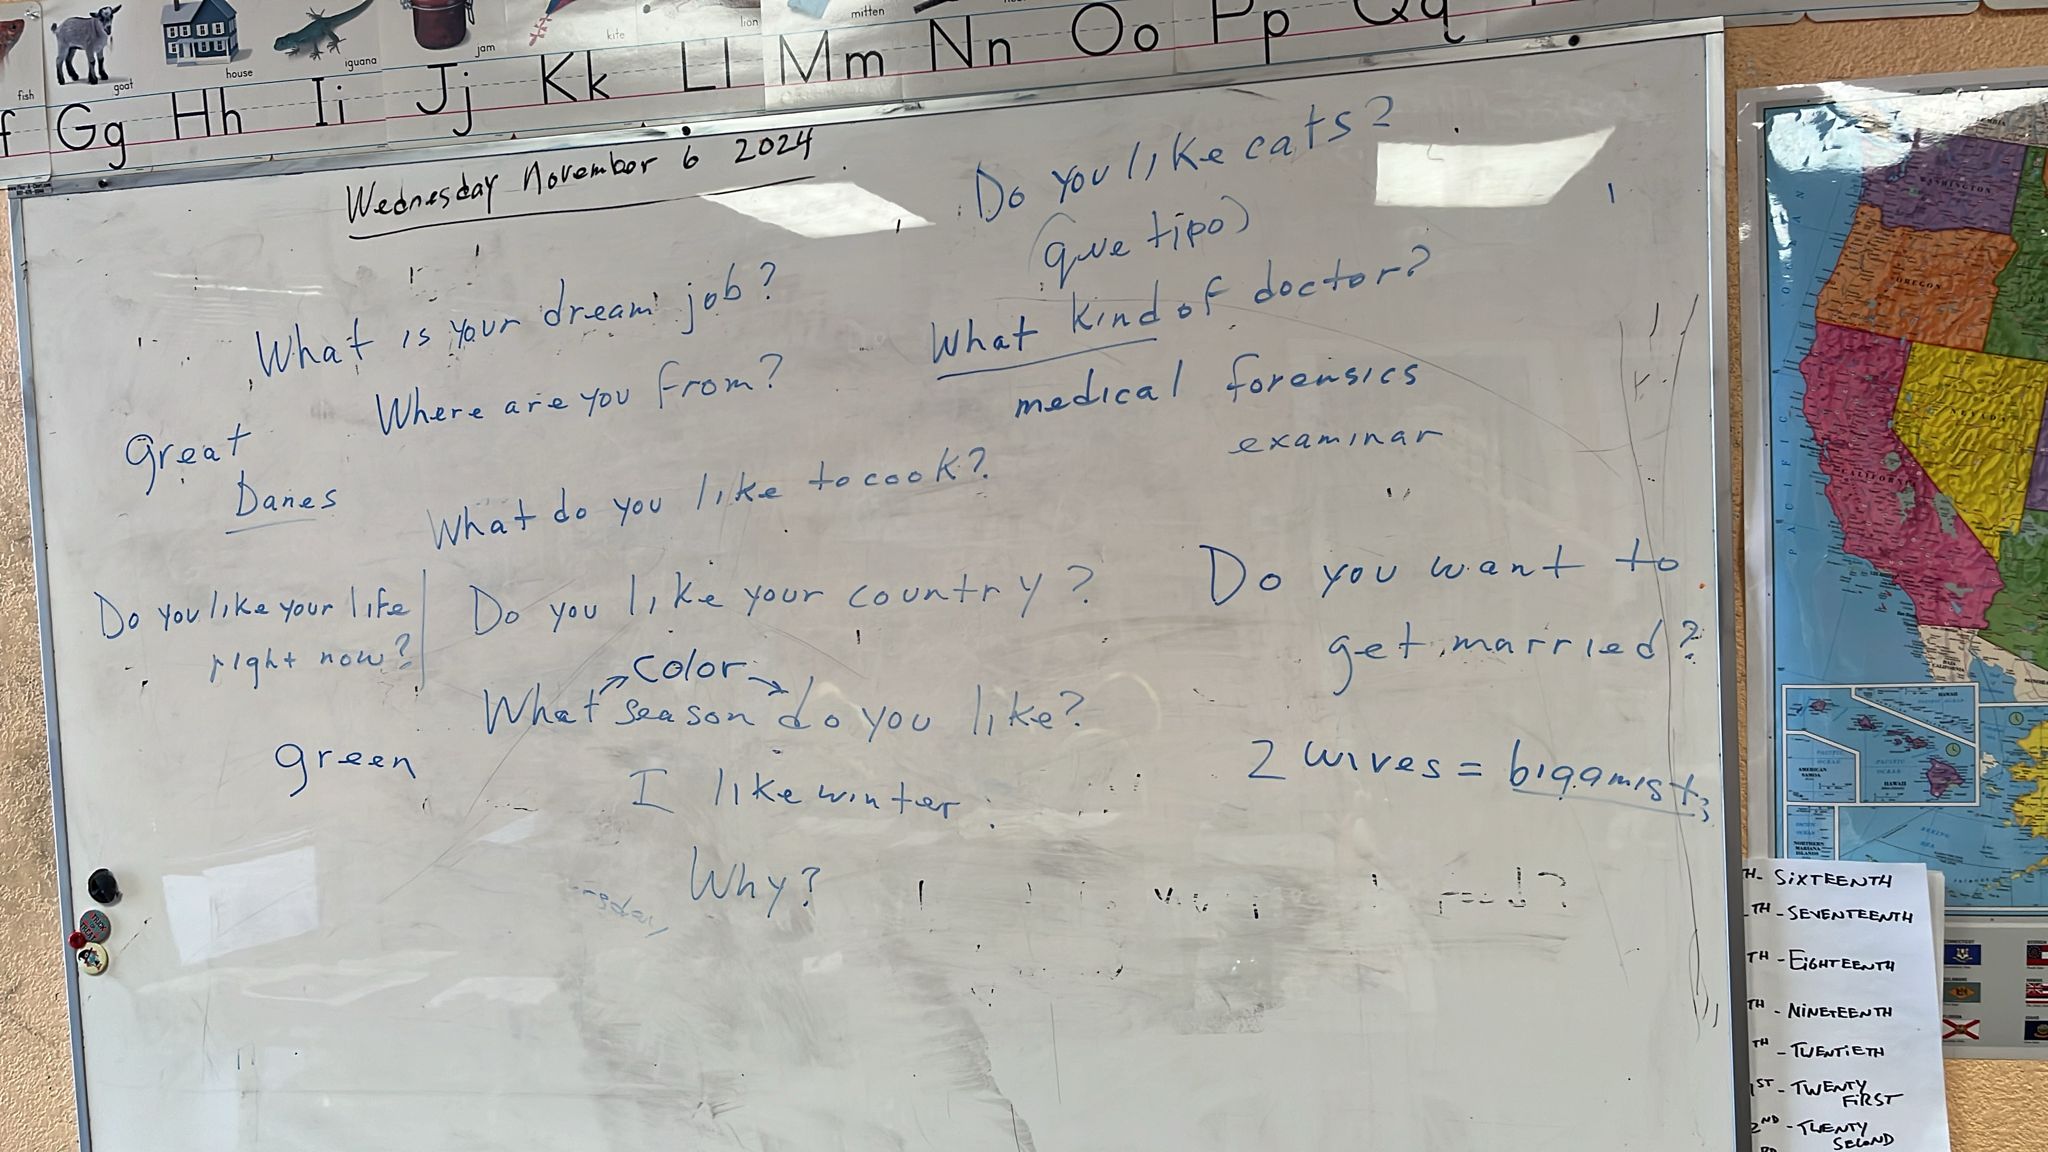 fish
goat
house
iguana
jam
kite
lion
mitten
f Gg Hh Ii Jj Kk Ll Mm Nn Oo Pp Qq
Wednesday November 6 2024
Do you like cats?
(que tipo)
What is your dream job?
What kind of doctor?
Where are you from?
medical forensics
examinar
Great
Danes
What do you like to cook?
Do you like your life
right now?
Do you like your country?
Do you want to
get married?
color
What season do you like?
green
I like winter.
2 wives = bigamist
Why?
WASHINGTON
OREGON
NEVADA
CALIFORNIA
PACIFIC
HAWAII
TH- SIXTEENTH
TH - SEVENTEENTH
TH - EIGHTEENTH
TH - NINETEENTH
TH - TWENTIETH
1ST - TWENTY
FIRST
2ND - TWENTY
SECOND